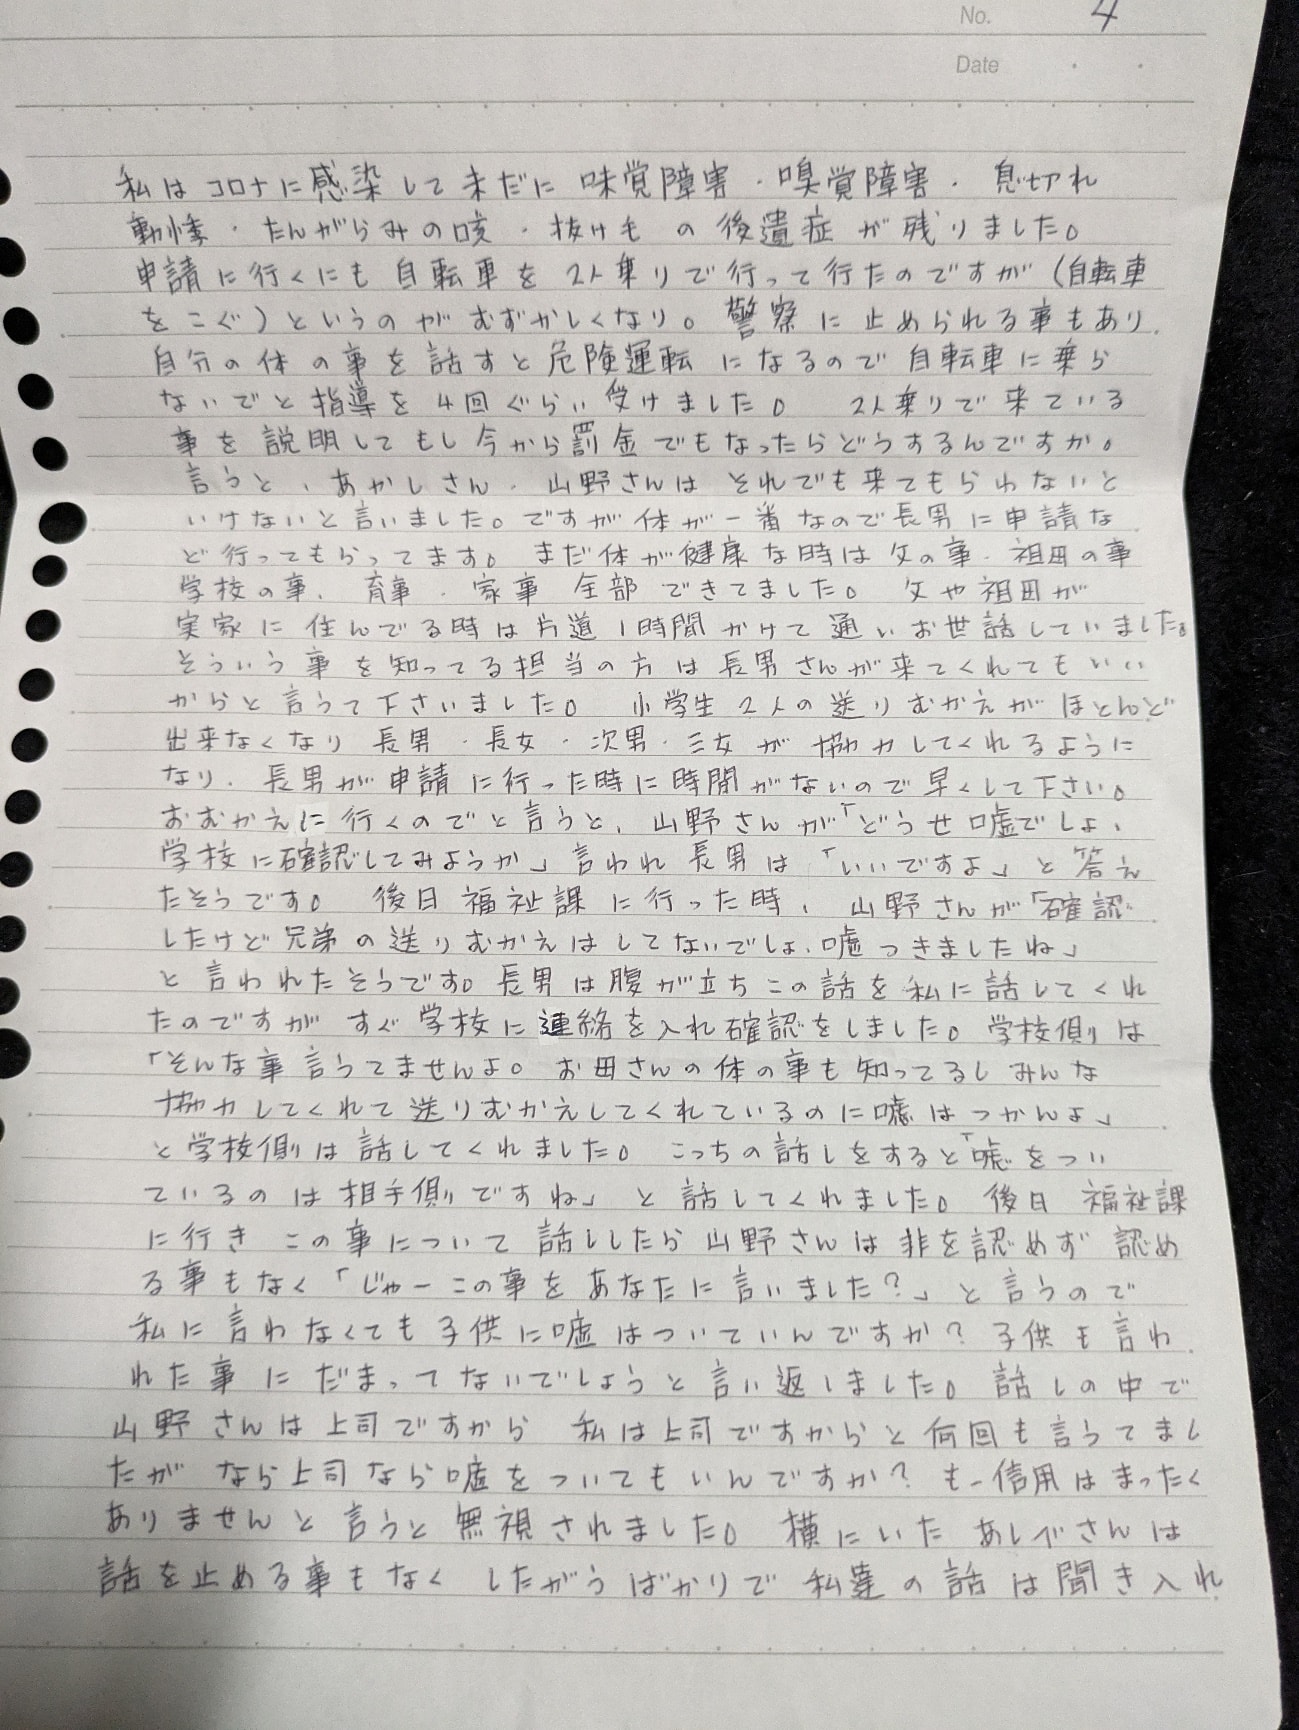 No. 4
Date
私はコロナに感染して未だに味覚障害・嗅覚障害・息切れ
動悸・たんがらみの咳・抜け毛の後遺症が残りました。
申請に行くにも自転車を2人乗りで行って行たのですが(自転車
をこぐ)というのがむずかしくなり。警察に止められる事もあり
自分の体の事を話すと危険運転になるので自転車に乗ら
ないでと指導を4回ぐらい受けました。 2人乗りで来ている
事を説明してもし今から罰金でもなったらどうするんですか。
言うと、あかしさん・山野さんはそれでも来てもらわないと
いけないと言いました。ですが体が一番なので長男に申請な
ど行ってもらってます。まだ体が健康な時は父の事・祖母の事
学校の事、育事・家事 全部できてました。父や祖母が
実家に住んでる時は片道1時間かけて通いお世話していました。
そういう事を知ってる担当の方は長男さんが来てくれてもいい
からと言うて下さいました。 小学生2人の送りむかえがほとんど
出来なくなり長男・長女・次男・三女が協力してくれるように
なり、長男が申請に行った時に時間がないので早くして下さい。
おむかえに行くのでと言うと、山野さんが「どうせ嘘でしょ、
学校に確認してみようか」言われ長男は「いいですよ」と答え
たそうです。 後日福祉課に行った時、山野さんが「確認
したけど兄弟の送りむかえはしてないでしょ、嘘つきましたね」
と言われたそうです。長男は腹が立ちこの話を私に話してくれ
たのですがすぐ学校に連絡を入れ確認をしました。学校側は
「そんな事言うてませんよ。お母さんの体の事も知ってるしみんな
協力してくれて送りむかえしてくれているのに嘘はつかんよ」
と学校側は話してくれました。こっちの話しをすると「嘘をつい
ているのは相手側ですね」と話してくれました。後日 福祉課
に行きこの事について話ししたら山野さんは非を認めず認め
る事もなく「じゃーこの事をあなたに言いました?」と言うので
私に言わなくても子供に嘘はついていんですか?子供も言わ
れた事にだまってないでしょうと言い返しました。話しの中で
山野さんは上司ですから 私は上司ですからと何回も言うてまし
たが なら上司なら嘘をついてもいんですか?も一信用はまったく
ありませんと言うと無視されました。横にいたあしべさんは
話を止める事もなくしたがうばかりで私達の話は聞き入れ